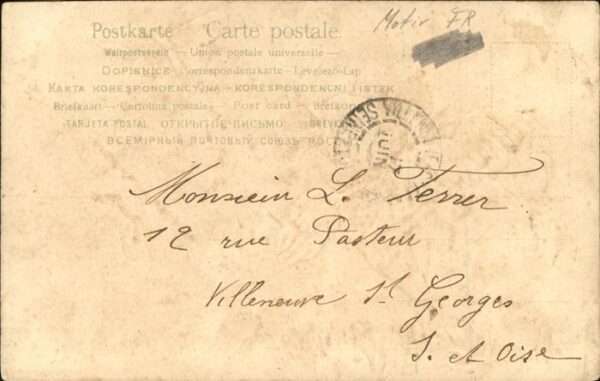 Postkarte Carte postale
Weltpostverein — Union postale universelle —
DOPISNICE Correspondenzkarte - Levelező-Lap
KARTA KORESPONDENCYJNA - KORESPONDENČNÍ LÍSTEK
Briefkaart - Cartolina postale - Post card -
TARJETA POSTAL ОТКРЫТОЕ ПИСЬМО
ВСЕМІРНЫЙ ПОЧТОВЫЙ СОЮЗЪ
FR
JUIN
Monsieur L. Terrer
12 rue Pasteur
Villeneuve St Georges
S. et Oise